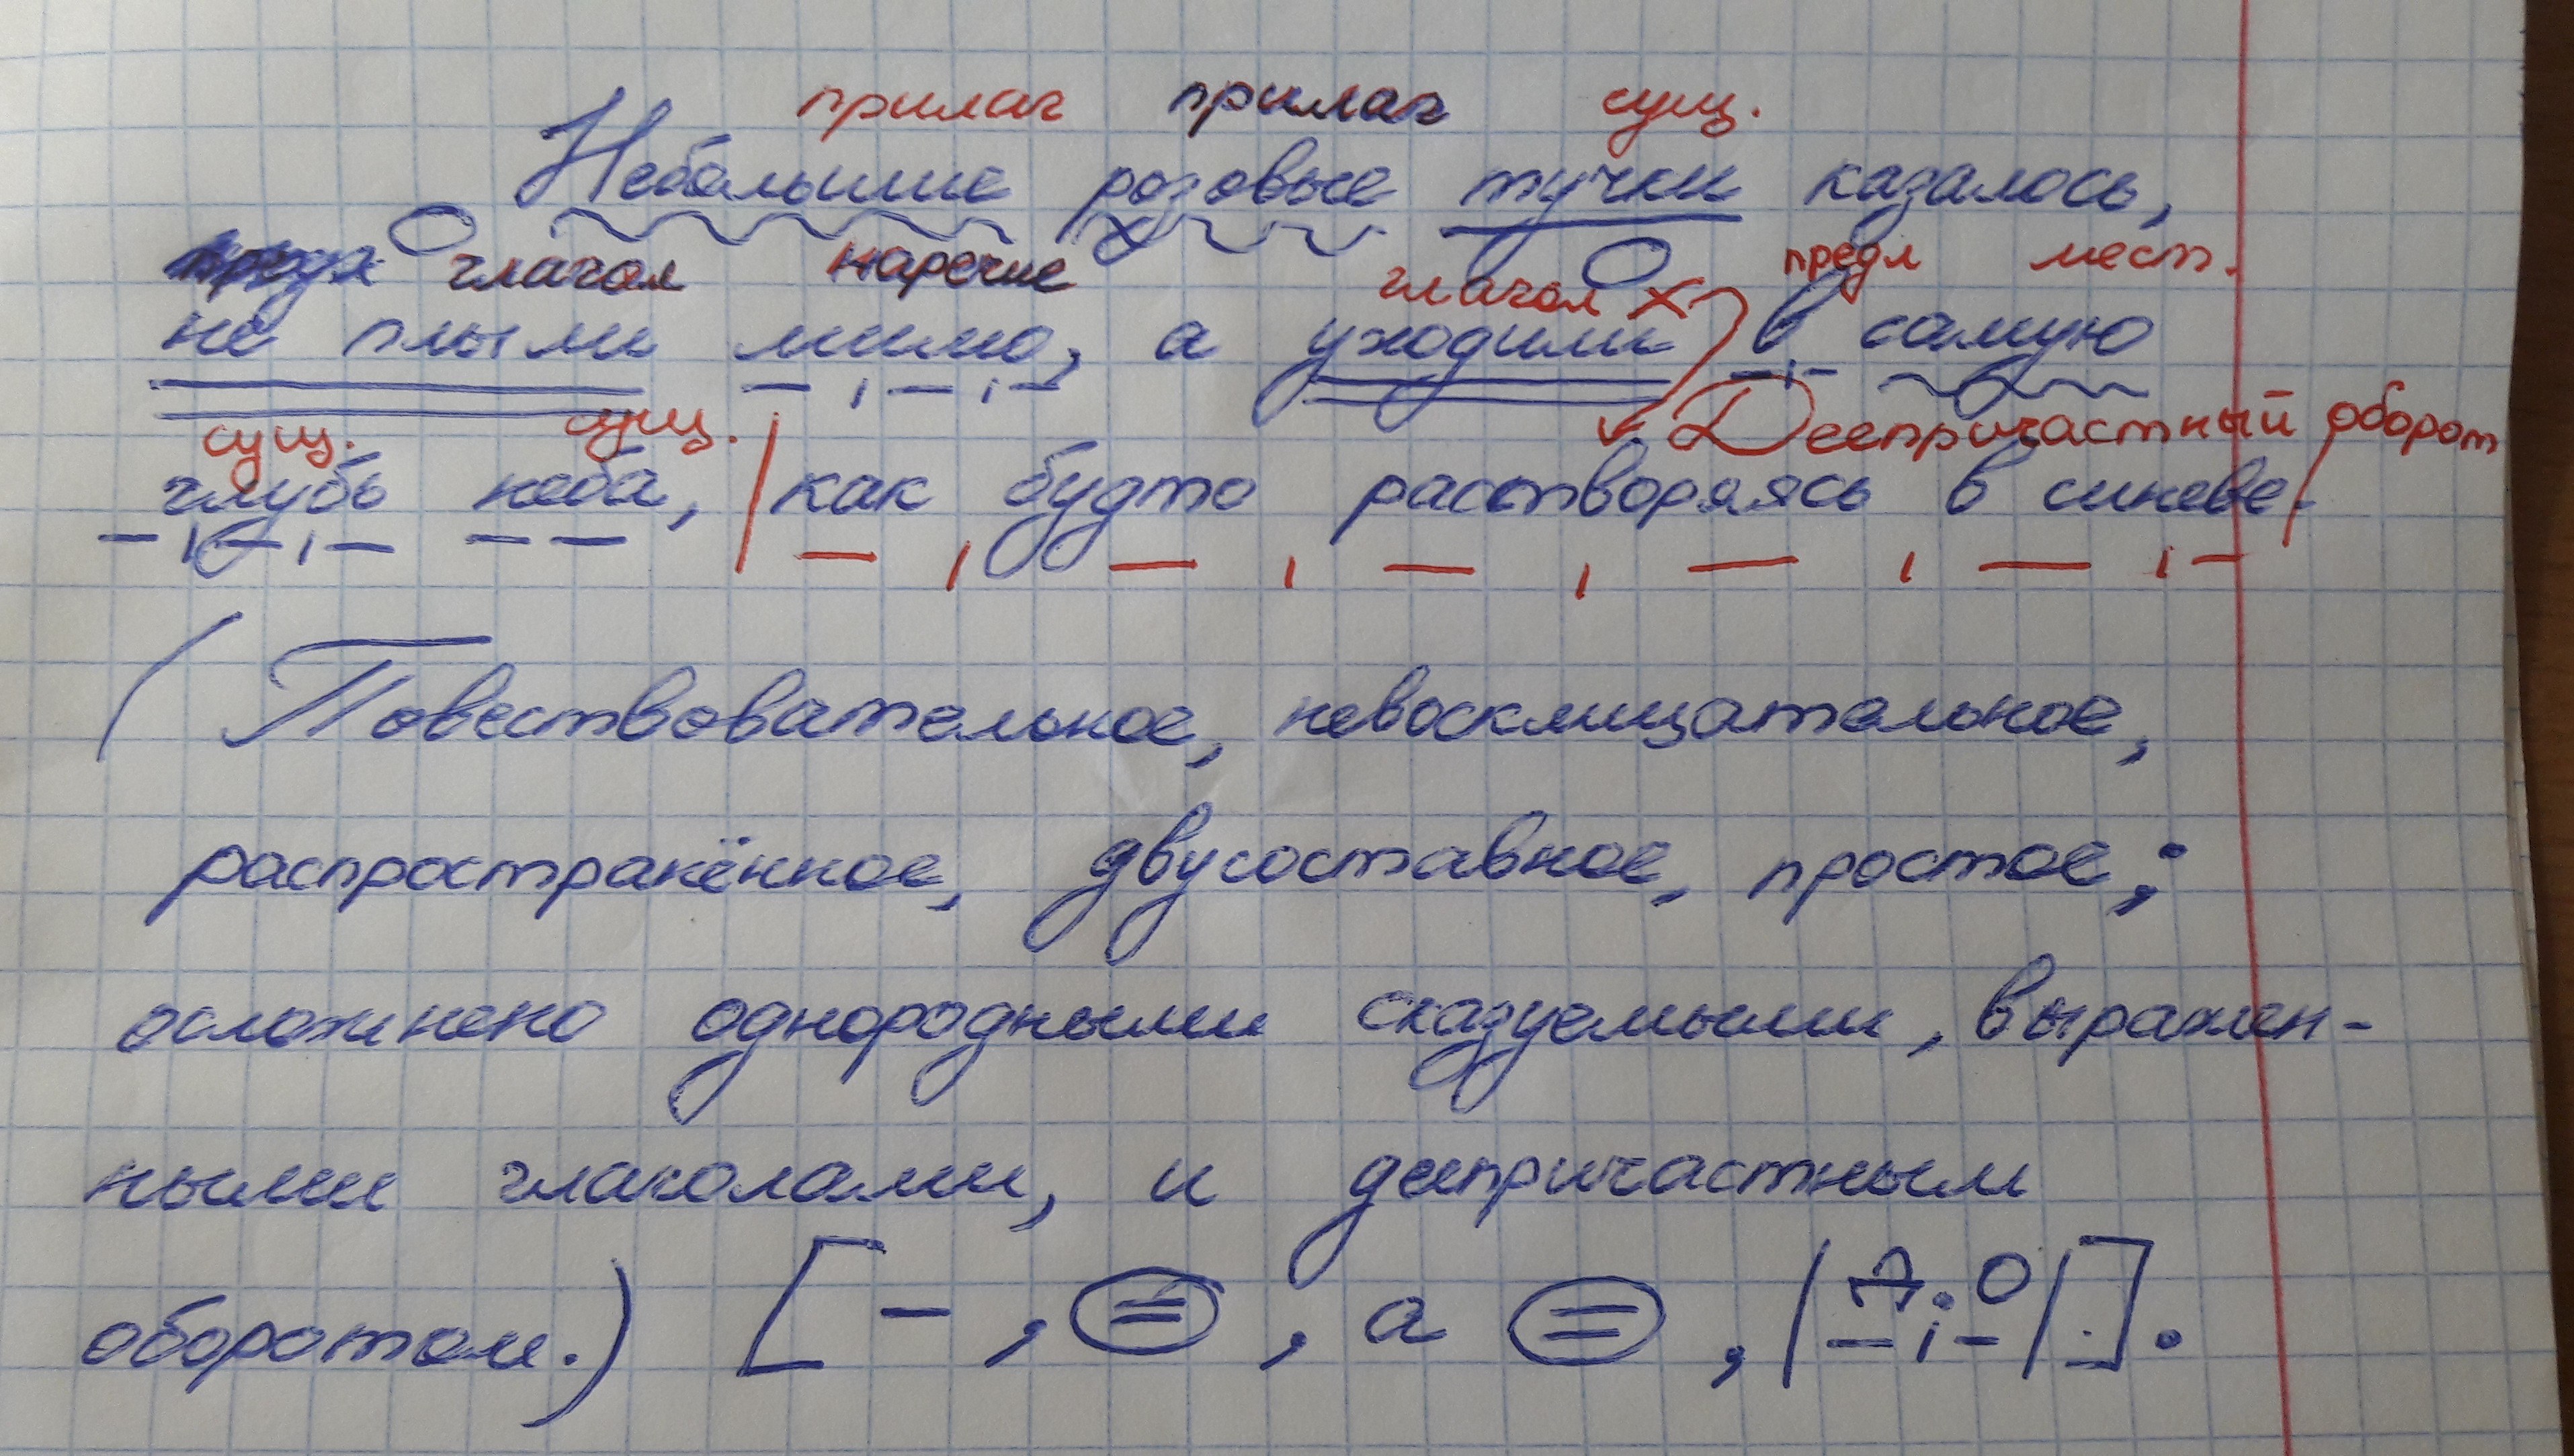 прилаг прилаг сущ.
Небольшие розовые тучки казалось,
глагол наречие глагол х предл мест.
не плыли мимо, а уходили в самую
сущ. сущ. Деепричастный оборот
глубь неба, как будто растворяясь в синеве.
(Повествовательное, невосклицательное,
распространённое, двусоставное, простое;
осложнено однородными сказуемыми, выражен-
ными глаголами, и деепричастным
оборотом.) [ – , = , а = , | Д.О | ].